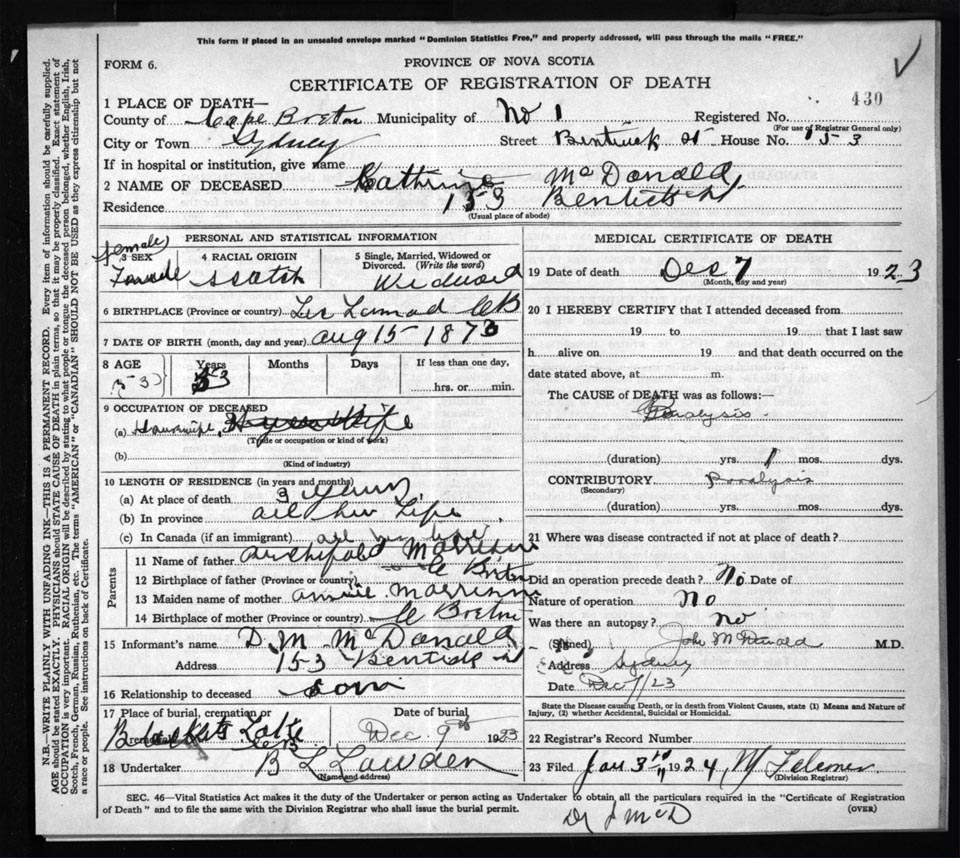 This form if placed in an unsealed envelope marked "Dominion Statistics Free," and properly addressed, will pass through the mails "FREE."
FORM 6.
PROVINCE OF NOVA SCOTIA
CERTIFICATE OF REGISTRATION OF DEATH
430
1 PLACE OF DEATH—
County of Cape Breton Municipality of No 1 Registered No.
(For use of Registrar General only)
City or Town Sydney Street Bentick St House No. 153
If in hospital or institution, give name
2 NAME OF DECEASED Catherine McDonald
Residence 153 Bentick St
(Usual place of abode)
PERSONAL AND STATISTICAL INFORMATION
female
3 SEX
4 RACIAL ORIGIN Scotch
5 Single, Married, Widowed or Divorced. (Write the word) Widow
6 BIRTHPLACE (Province or country) CB
7 DATE OF BIRTH (month, day and year) Aug 15 - 1870
8 AGE 53 Years 53 Months Days If less than one day, hrs. or min.
9 OCCUPATION OF DECEASED
(a) Housewife
(Trade or occupation or kind of work)
(b)
(Kind of industry)
10 LENGTH OF RESIDENCE (in years and months)
(a) At place of death 3 years
(b) In province all her life
(c) In Canada (if an immigrant) all her life
Parents
11 Name of father Archibald Morrison
12 Birthplace of father (Province or country) C Breton
13 Maiden name of mother Annie Morrison
14 Birthplace of mother (Province or country) C Breton
15 Informant's name D. M. McDonald
Address 153 Bentick St
16 Relationship to deceased son
17 Place of burial, cremation or
Lake CB
Date of burial
Dec. 9th 1923
18 Undertaker B L Lowden
(Name and address)
MEDICAL CERTIFICATE OF DEATH
19 Date of death Dec 7 1923
(Month, day and year)
20 I HEREBY CERTIFY that I attended deceased from
19 to 19 that I last saw
h alive on 19 and that death occurred on the
date stated above, at m.
The CAUSE of DEATH was as follows:—
Paralysis
(duration) yrs. 1 mos. dys.
CONTRIBUTORY Paralysis
(Secondary)
(duration) yrs. mos. dys.
21 Where was disease contracted if not at place of death?
Did an operation precede death? No Date of
Nature of operation No
Was there an autopsy? No
(Signed) John McDonald M.D.
Address Sydney
Date Dec 7/23
State the Disease causing Death, or in death from Violent Causes, state (1) Means and Nature of
Injury, (2) whether Accidental, Suicidal or Homicidal.
22 Registrar's Record Number
23 Filed Jan 3rd 1924,
(Division Registrar)
SEC. 46—Vital Statistics Act makes it the duty of the Undertaker or person acting as Undertaker to obtain all the particulars required in the "Certificate of Registration
of Death" and to file the same with the Division Registrar who shall issue the burial permit.
(OVER)
Dr J McD
N.B.—WRITE PLAINLY WITH UNFADING INK—THIS IS A PERMANENT RECORD. Every item of information should be carefully supplied.
AGE should be stated EXACTLY. PHYSICIANS should STATE CAUSE OF DEATH in plain terms, so that it may be properly classified. Exact statement of
OCCUPATION is very important. RACIAL ORIGIN will be described by stating to what people or tongue the deceased person belonged, whether English, Irish,
Scotch, French, German, Russian, Ruthenian, etc. The terms "AMERICAN" or "CANADIAN" SHOULD NOT BE USED as they express citizenship but not
a race or people. See instructions on back of Certificate.